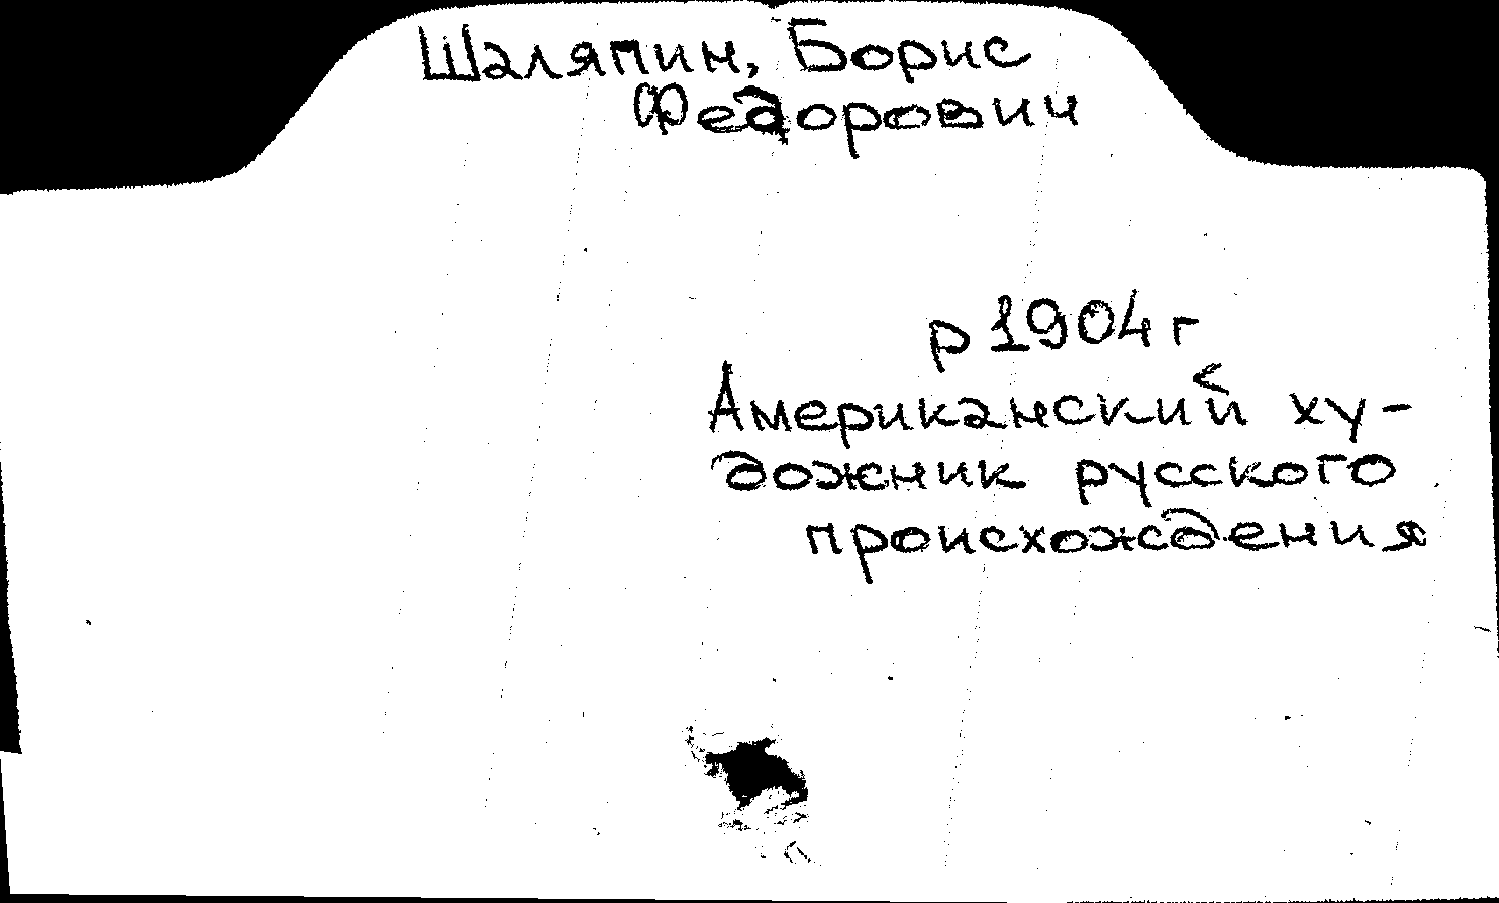 Шаляпин, Борис
Федорович
р 1904 г
Американский ху-
дожник русского
происхождения